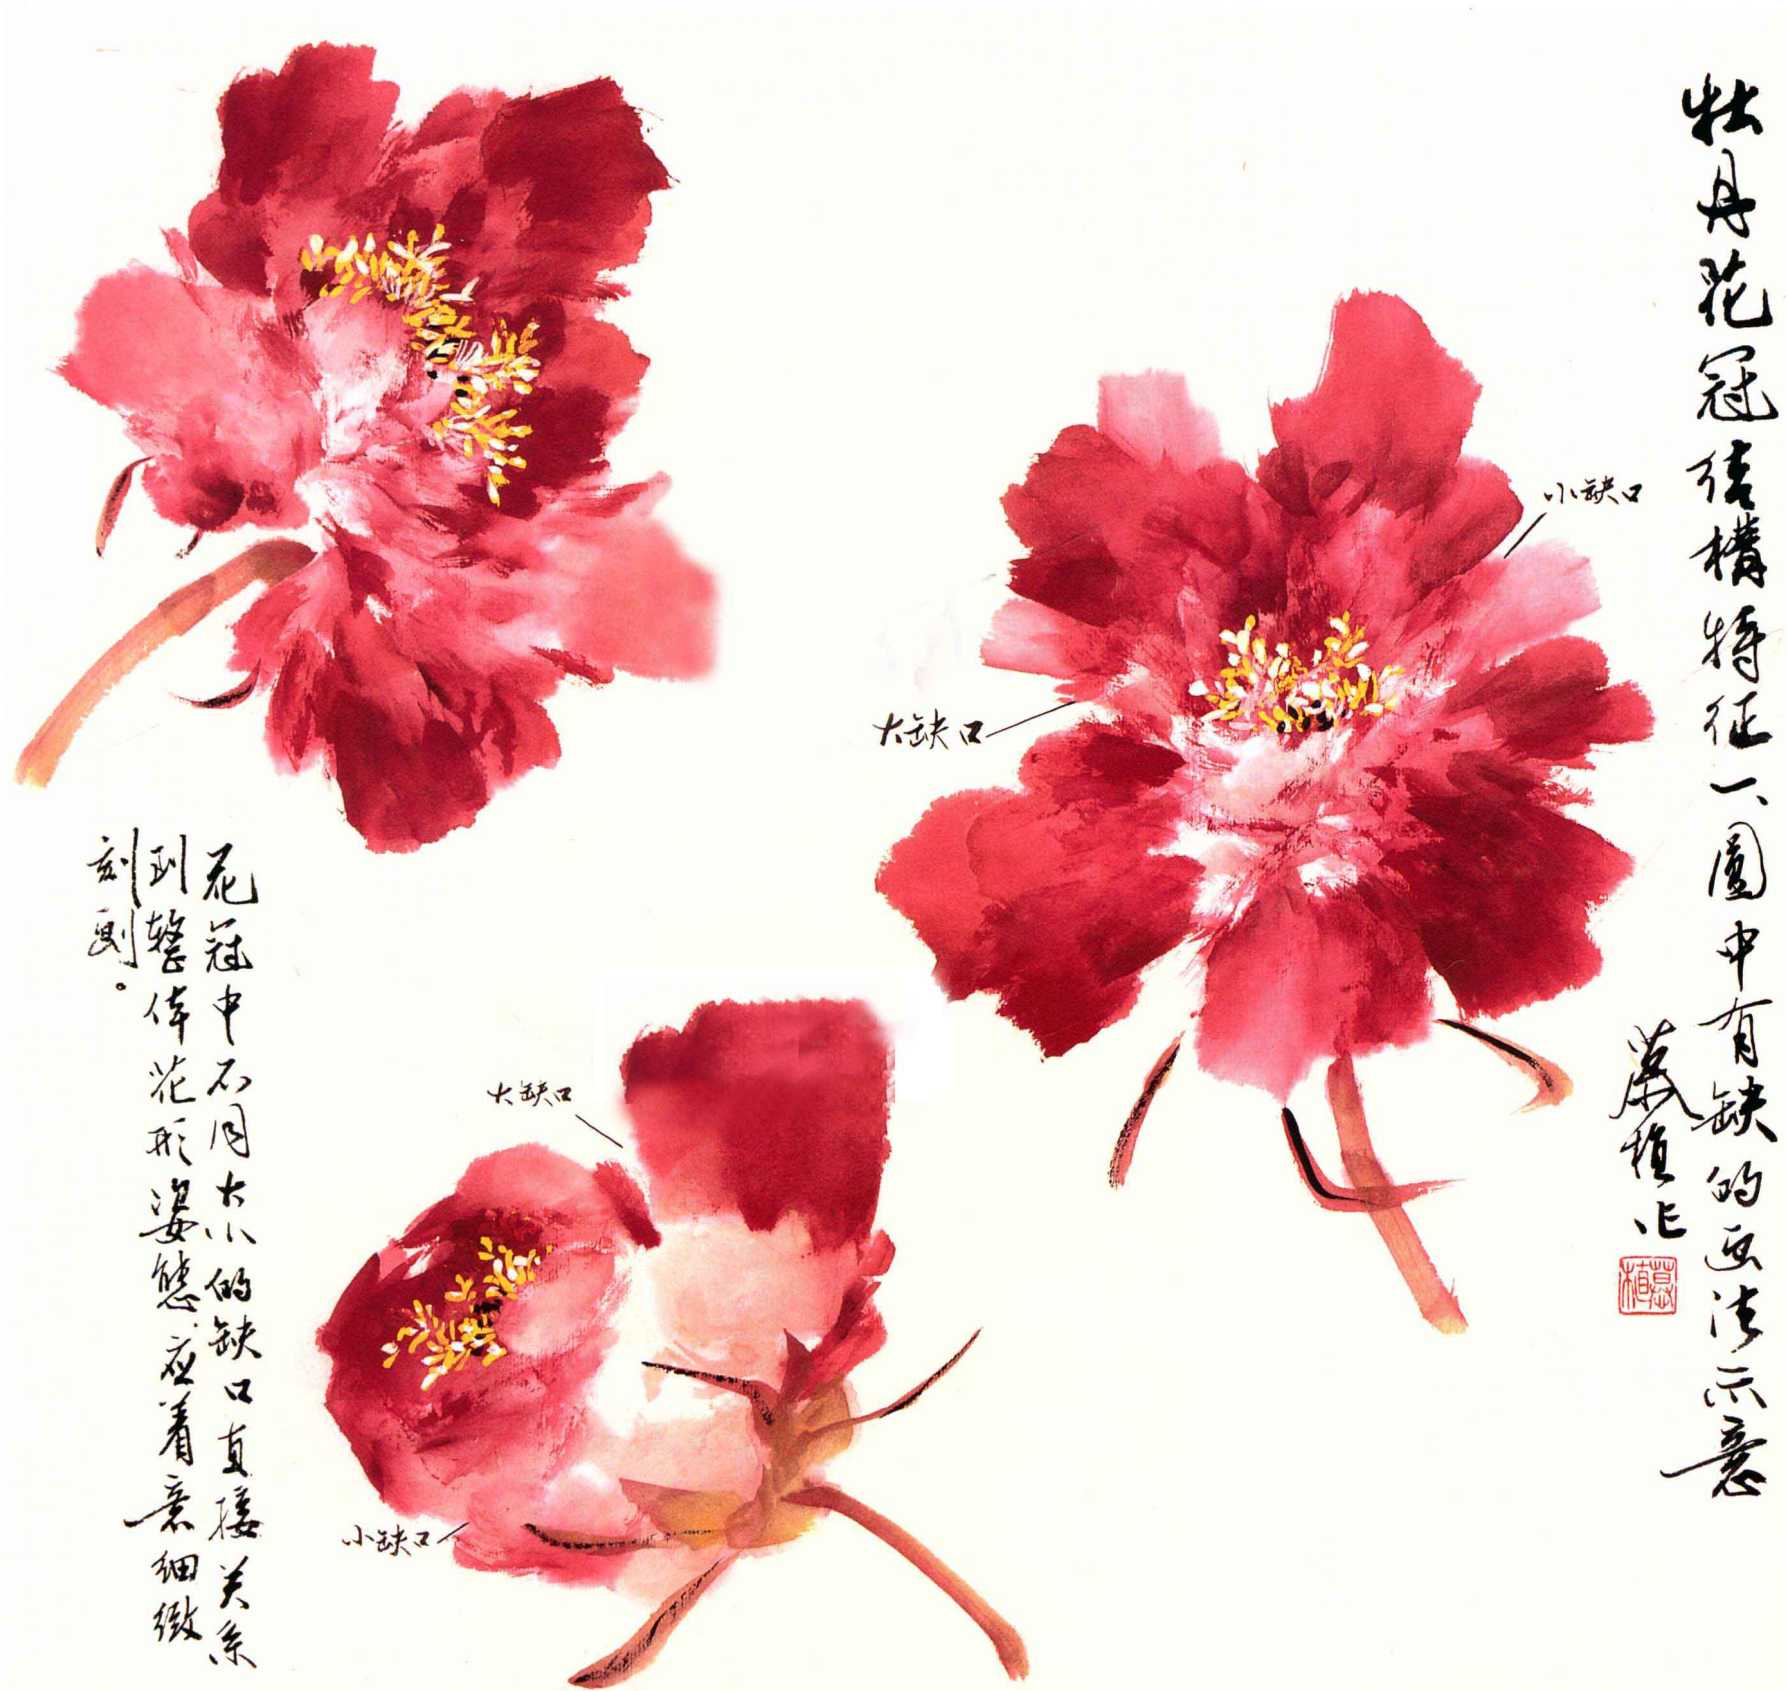 牡丹花冠结構特征一、圆中有缺的画法示意
慕植作
植慕
小缺口
大缺口
大缺口
小缺口
花冠中不同大小的缺口直接关系
到整体花形姿態,应着意细緻
刻画。